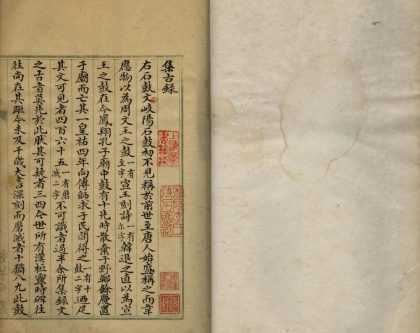 集古錄
右石鼓文岐陽石鼓初不見稱於前世至唐人始盛稱之而韋
應物以為周文王之鼓一有至字宣王刻詩一有爾字韓退之直以為宣
王之鼓在今鳳翔孔子廟中鼓有十先時散棄于野鄭餘慶置
于廟而亡其一皇祐四年向傳師求于民間得之一有十鼓二字廼足
其文可見者四百六十五一有磨滅二字不可識者過半余所集錄文
之古者莫先於此然其可疑者三四今世所有漢桓靈時碑往
往尚在其距今未及千歲大書深刻而磨滅者十猶八九此鼓